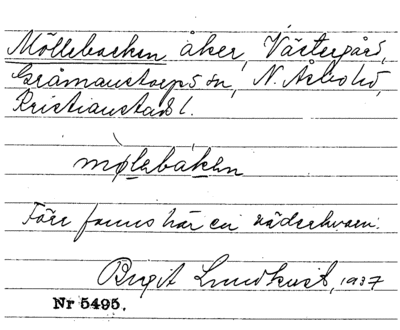 Möllebacken åker, Västergård,
Gråmanstorps sn, N. Åsbo hd,
Kristianstads l.
mø̀lebákən
Förr fanns här en väderkvarn.
Birgit Lundkvist, 1937
Nr 5495.